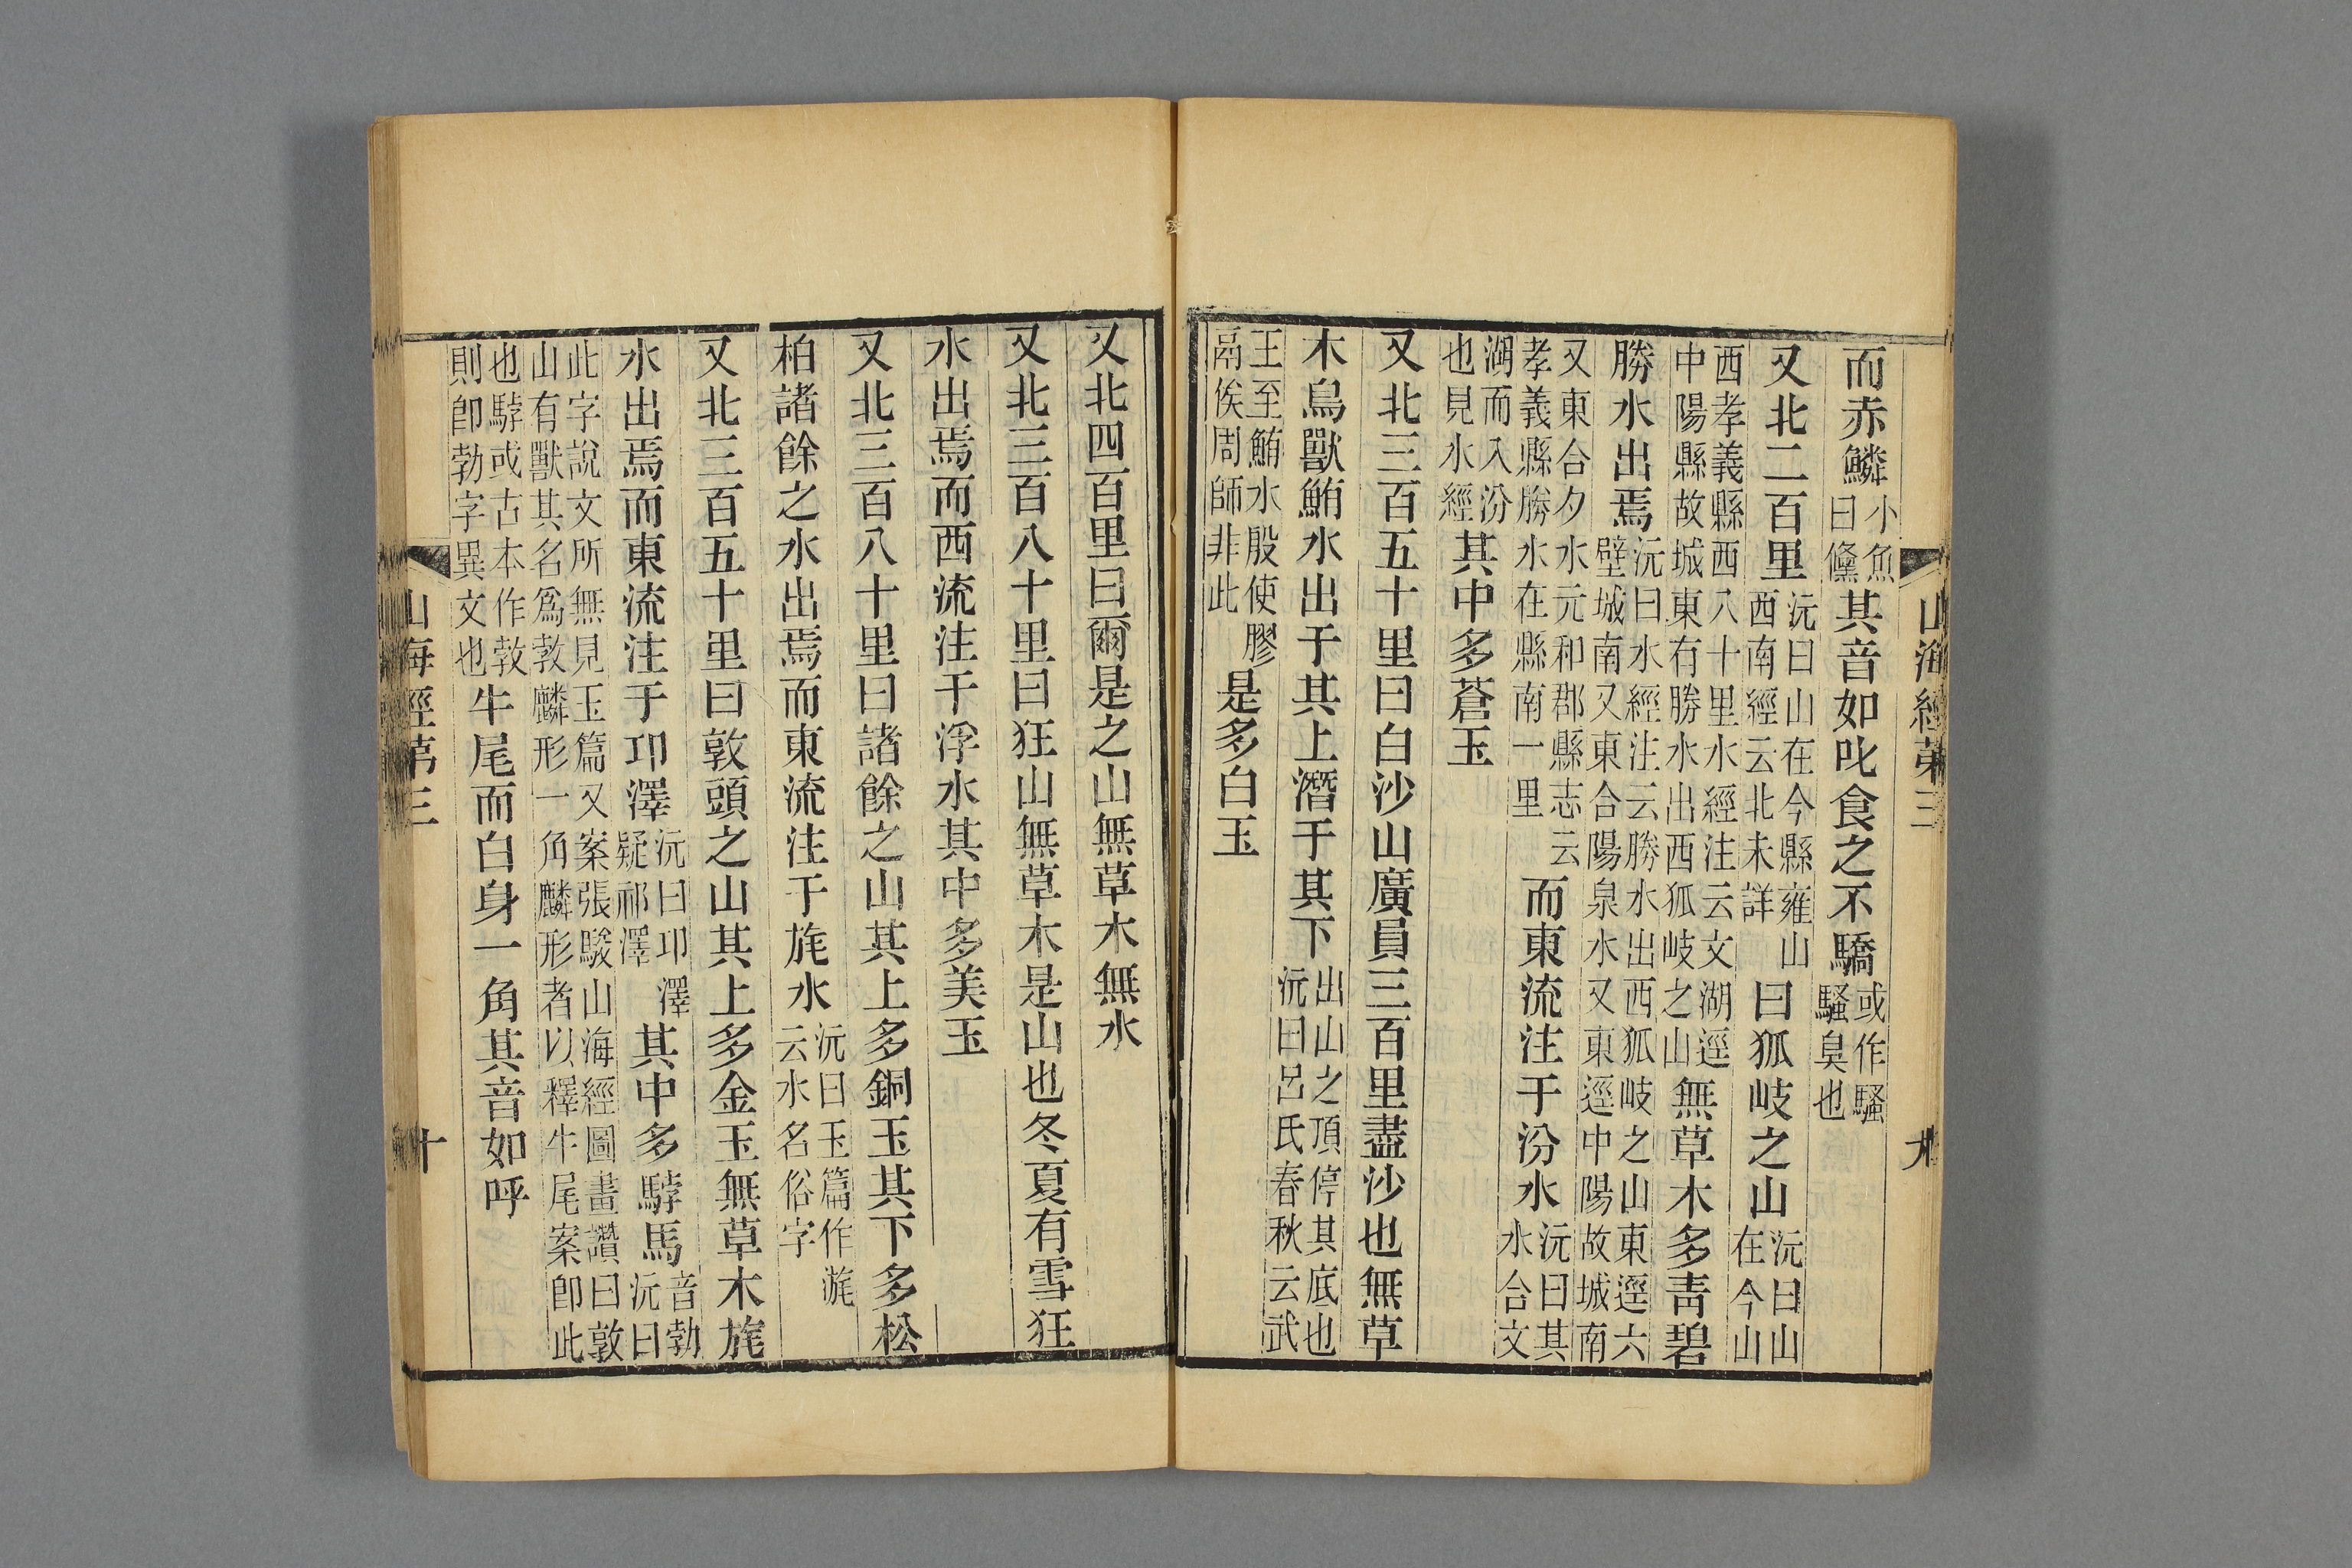 山海經第三　九
而赤鱗小魚曰儵其音如叱食之不驕或作騷騷臭也
又北二百里沅曰山在今縣雍山西南經云北未詳曰狐岐之山沅曰山在今山
西孝義縣西八十里水經注云文湖逕中陽縣故城東有勝水出西狐岐之山無草木多青碧
勝水出焉沅曰水經注云勝水出西狐岐之山東逕六壁城南又東合陽泉水又東逕中陽故城南
又東合夕水元和郡縣志云孝義縣勝水在縣南一里而東流注于汾水沅曰其水合文
湖而入汾也見水經其中多蒼玉
又北三百五十里曰白沙山廣員三百里盡沙也無草
木鳥獸鮪水出于其上潛于其下出山之頂停其底也沅曰呂氏春秋云武
王至鮪水殷使膠鬲俟周師非此是多白玉
又北四百里曰爾是之山無草木無水
又北三百八十里曰狂山無草木是山也冬夏有雪狂
水出焉而西流注于浮水其中多美玉
又北三百八十里曰諸餘之山其上多銅玉其下多松
柏諸餘之水出焉而東流注于旄水沅曰玉篇作㲝云水名俗字
又北三百五十里曰敦頭之山其上多金玉無草木旄
水出焉而東流注于邛澤沅曰邛澤疑祁澤其中多䮀馬音勃沅曰
此字說文所無見玉篇又案張駿山海經圖畫讚曰敦山有獸其名爲㪍麟形一角麟形者以釋牛尾案即此
也䮀或古本作㪍則即勃字異文也牛尾而白身一角其音如呼
山海經第三　十